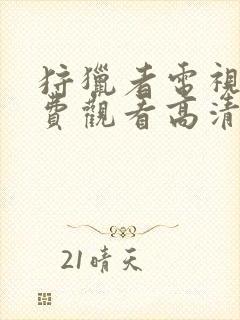 狩獵者電視
費觀看高清
21晴天